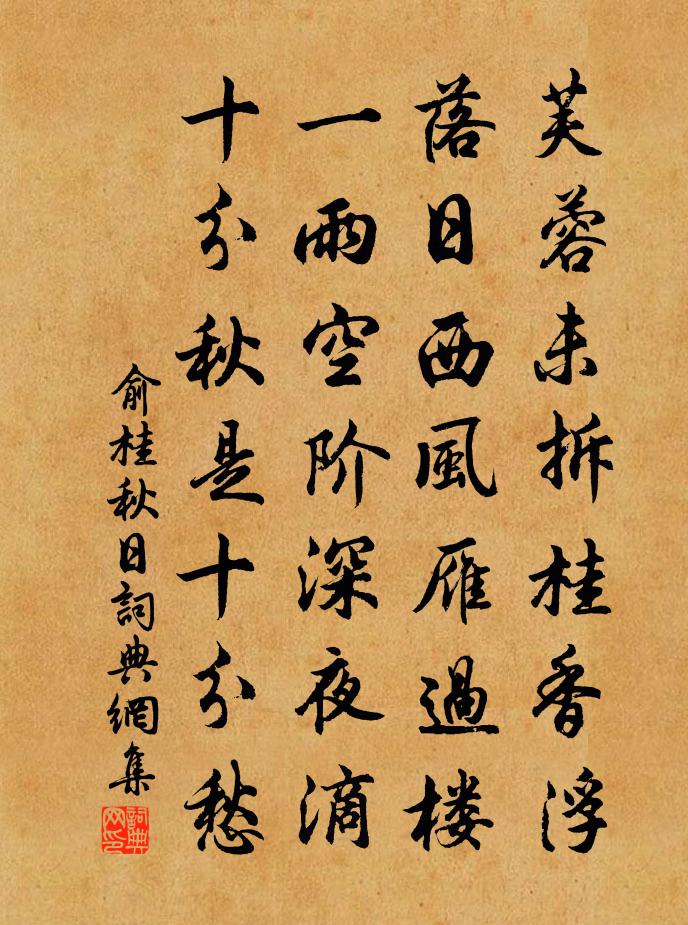 芙蓉未拆桂香浮
落日西風雁過楼
一雨空阶深夜滴
十分秋是十分愁
俞桂秋日詞典網集
詞典网印